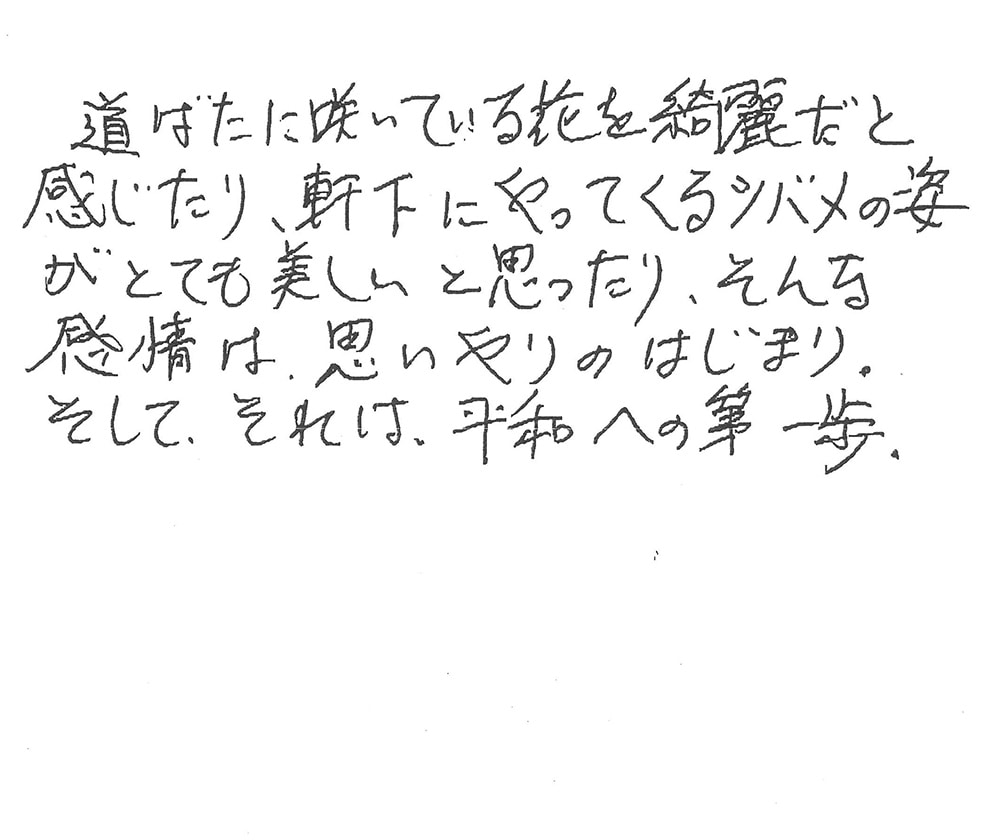 道ばたに咲いている花を綺麗だと
感じたり、軒下にやってくるツバメの姿
がとても美しいと思ったり、そんな
感情は、思いやりのはじまり。
そして、それは、平和への第一歩。